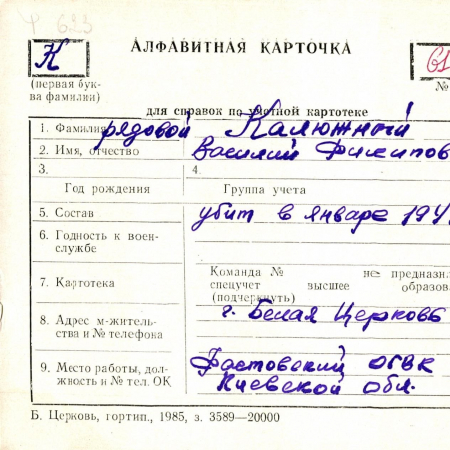 Ф 693
К
АЛФАВИТНАЯ КАРТОЧКА
61
(первая бук-
ва фамилии)
№
для справок по учетной картотеке
1. Фамилия рядовой Калюжный
2. Имя, отчество Василий Филипов
3.
4.
Год рождения
Группа учета
5. Состав убит в январе 194
6. Годность к воен-
службе
7. Картотека
Команда № не предназна
спецучет высшее образова
(подчеркнуть)
8. Адрес м-житель-
ства и № телефона
г. Белая Церковь
9. Место работы, дол-
жность и № тел. ОК
Фастовский ОГВК
Киевской обл.
Б. Церковь, гортип., 1985, з. 3589—20000